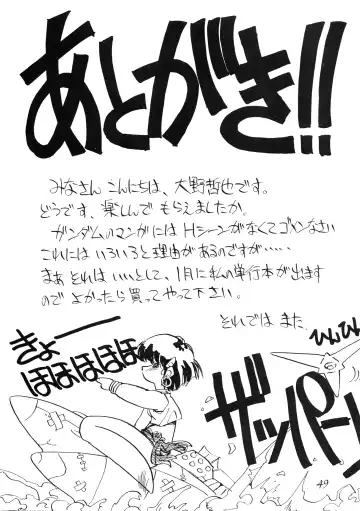 あとがき!!
みなさん こんにちは、大野哲也です。
どうです、楽しんでもらえましたか。
ガンダムのマンガには Hシーンがなくてゴメンなさい
これにはいろいろと理由があるのですが‥‥‥
まぁ それはいいとして、1月に私の単行本が出ます
ので よかったら買ってやって下さい。
それでは また。
きょーー
ほほほほほ
ひんひん
ザッパーン
49